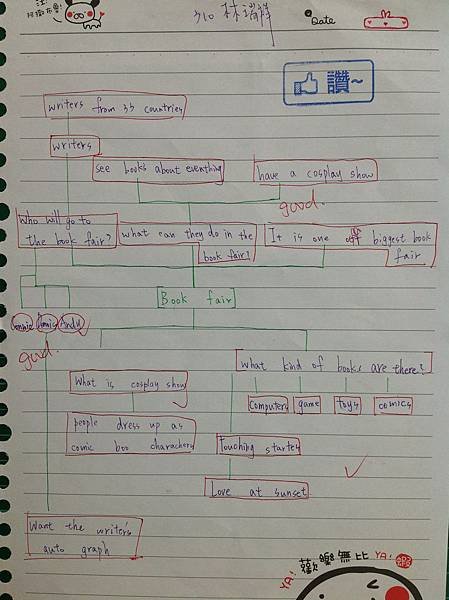 310 林瑞祥
Date
讚~
writers from 33 countries
writers
see books about everything
have a cosplay show
good.
Who will go to
the book fair?
what can they do in the
book fair?
It is one off biggest book
fair
Book fair
Connie
Annie
Andy
good.
What kind of books are there?
What is cosplay show
Computers
game
toys
comics
people dress up as
comic boo characters
Touching startes
Love at sunset
Want the writer's
auto graph
歡樂無比
YA!
YA!